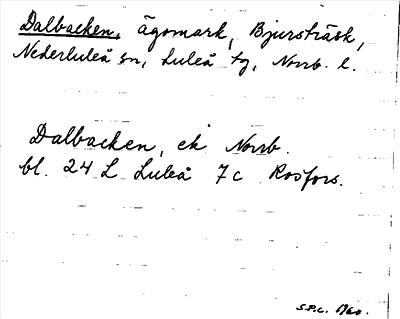 Dalbacken, ägomark, Bjursträsk,
Nederluleå sn, Luleå tg, Norrb. l.
Dalbacken, ek Norrb.
bl. 24 L Luleå 7c Rosfors.
S.P.C. 1960.